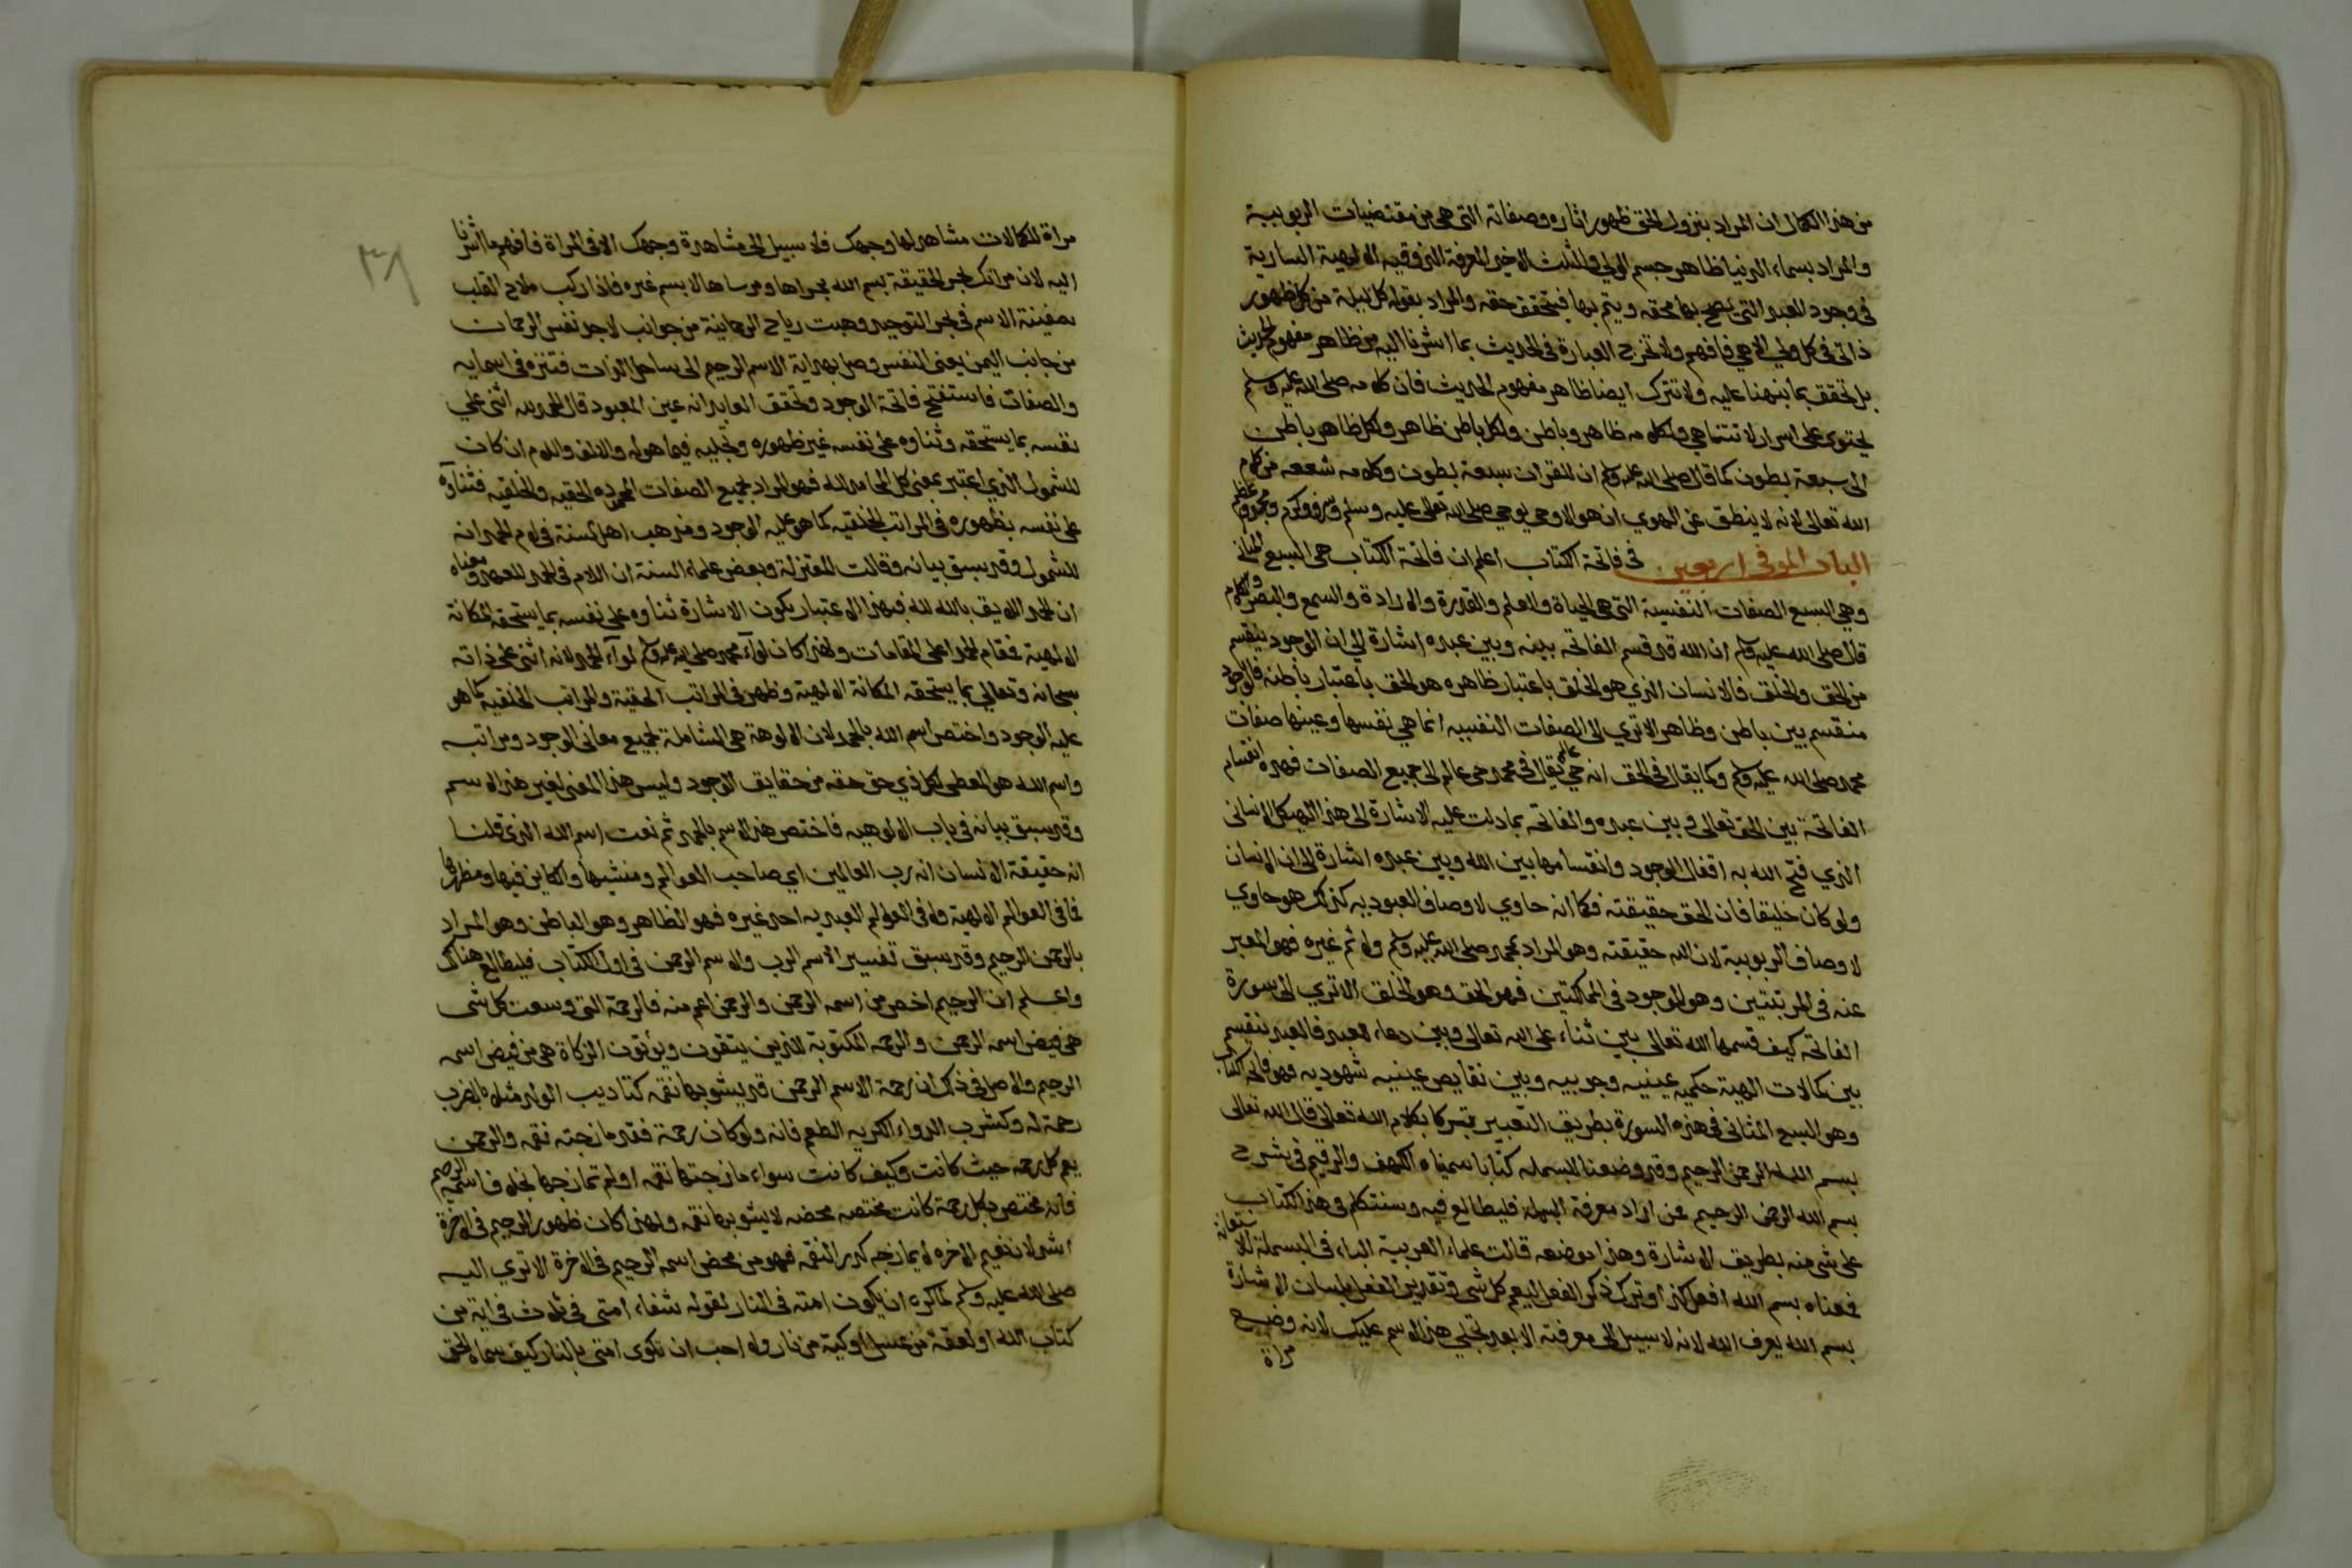 من هذا الكمال ان المراد بنزول الحق ظهور اثاره وصفاته التي هي من مقتضيات الربوبية
والمراد بسماء الدنيا ظاهر جسم الولي والثلث الاخير المعرفة الذوقيه الالهية السارية
في وجود العبد التي يصح بها محقه ويتم بها فيتحقق حقه والمراد بقوله كل ليلة من كل ظهور
ذاتي في كل ولي الاهي فافهم ولا تخرج العبارة في الحديث بما اشرنا اليه من ظاهر مفهوم الحديث
بل تحقق بما نبهنا عليه ولا تترك ايضا ظاهر مفهوم الحديث فان كلامه صلى الله عليه وسلم
يحتوي على اسرار لا تتناهي ولكلامه ظاهر وباطن ولكل باطن ظاهر ولكل ظاهر باطن
الى سبعة بطون كما قال صلى الله عليه وسلم ان للقران سبعة بطون وكلامه شعبه من كلام
الله تعالى لانه لا ينطق عن الهوي ان هو الا وحي يوحي صلى الله تعالى عليه وسلم وشرف وكرم ومجد وعظم
الباب الموفي اربعين في فاتحة الكتاب اعلم ان فاتحة الكتاب هي السبع المثاني
وهي السبع الصفات النفسية التي هي الحياة والعلم والقدرة والارادة والسمع والبصر والكلام
قال صلى الله عليه وسلم ان الله قد قسم الفاتحه بينه وبين عبده اشارة الى ان الوجود ينقسم
من الحق والخلق فالانسان الذي هو الخلق باعتبار ظاهره هو الحق باعتبار باطنه فالوجود
منقسم بين باطن وظاهر الا تري الى الصفات النفسيه انما هي نفسها وعينها صفات
محمد صلى الله عليه وسلم وكما يقال في الحق انه حي عالم يقال في محمد حي عالم الى جميع الصفات فهذه انقسام
الفاتحة بين الحق تعالى وبين عبده والفاتحه بما دلت عليه الاشارة الى هذا الهيكل الانساني
الذي فتح الله به اقفال الوجود وانقسامها بين الله وبين عبده اشارة الى ان الانسان
ولو كان خليقا فان الحق حقيقته فكما انه حاوي لاوصاف العبوديه كذلك هو حاوي
لاوصاف الربوبية لان الله حقيقته وهو المراد بمحمد صلى الله عليه وسلم ولا ثم غيره فهو المعبر
عنه في المرتبتين وهو الموجود في المملكتين فهو الحق وهو الخلق الا تري الى سورة
الفاتحه كيف قسمها الله تعالى بين ثناء على الله تعالى وبين دعاء العبد فالعبد ينقسم
بين كمالات الهية حكميه عينيه وجوبيه وبين نقايص عينيه شهوديه فهو فاتحة الكتاب
وهو السبع المثاني في هذه السورة بطريق التعبير تبركا بكلام الله تعالى قال الله تعالى
بسم الله الرحمن الرحيم وقد وضعنا للبسمله كتابا سميناه الكهف والرقيم في شرح
بسم الله الرحمن الرحيم فمن اراد معرفة البسملة فليطالع فيه وسنتكلم في هذا الكتاب
على شي منه بطريق الاشارة وهذا موضعه قالت علماء العربية الباء في البسملة للاستعانة
فمعناه بسم الله افعل كذا وترك ذكر الفعل ليعم كل شي وتقدير الفعل بلسان الاشارة
بسم الله يعرف الله لانه لا سبيل الى معرفته الا بعد تجلي هذا الاسم عليك لانه وضع
مراة
٣٨
مراة للكمالات مشاهد لها وجهك فلا سبيل الى مشاهدة وجهك الا في المراة فافهم ما اشرنا
اليه لان مراتك بحر الحقيقة بسم الله مجراها ومرساها لا بسم غيره فاذا ركب ملاح القلب
سفينة الاسم في بحر التوحيد وهبت رياح الرحمانية من جوانب لاجد نفس الرحمان
من جانب اليمن يعني النفس وصل بهداية الاسم الرحيم الى ساحل الذات فتنزه في اسمايه
والصفات فاستفتح فاتحة الوجود وتحقق العابد انه عين المعبود قال الحمد لله اثنى علي
نفسه بما يستحقه وثناوه على نفسه غير ظهوره وتجليه فيما هو له والالف واللام ان كان
للشمول الذي اعتبر بمعنى كل المحامد لله فهو المراد بجميع الصفات المحموده الحقيه والخلقيه فثناوه
على نفسه بظهوره في المراتب الخلقيه كما هو عليه الوجود ومذهب اهل السنة في لام الحمد انه
للشمول وقد سبق بيانه وقالت المعتزلة وبعض علماء السنة ان اللام في الحمد للعهد ومعناه
ان الحمد اللايق بالله لله فبهذا الاعتبار يكون الاشارة ثناوه على نفسه بما يستحقه المكانة
الالهية فمقام الحمد اعلى المقامات ولهذا كان لواء محمد صلى الله عليه وسلم لواء الحمد لانه اثنى على ذاته
سبحانه وتعالي بما يستحقه المكانة الالهية وظهر في المراتب الحقية والمراتب الخلقيه كما هو
عليه الوجود واختص اسم الله بالحمد لان الالوهة هي الشاملة لجميع معاني الوجود ومراتبه
واسم الله هو المعطي لكل ذي حق حقه من حقايق الوجود وليس هذا المعنى لغير هذا الاسم
وقد سبق بيانه في باب الالوهيه فاختص هذا الاسم بالحمد ثم نعت اسم الله الذي قلنا
انه حقيقة الانسان انه رب العالمين اي صاحب العوالم ومنشيها والكاين فيها ومظهرها
فما في العوالم الالهية ولا في العوالم العبديه احد غيره فهو الظاهر وهو الباطن وهو المراد
بالرحمن الرحيم وقد سبق تفسير الاسم الرب والاسم الرحمن في اول الكتاب فليطالع هناك
واعلم ان الرحيم اخص من اسمه الرحمن والرحمن اعم منه فالرحمة التي وسعت كل شي
هي فيض اسمه الرحمن والرحمه المكتوبة للذين يتقون ويوتون الزكاة هي من فيض اسمه
الرحيم والاصل في ذلك ان رحمة الاسم الرحمن قد يشوبها نقمه كتاديب الولد مثلا بالضرب
رحمة له وكشرب الدواء الكريه الطعم فانه ولو كان رحمة فقد مازجته نقمه والرحمن
يعم كل رحمه حيث كانت وكيف كانت سواء مازجتها نقمه او لم تمازجها بخلاف اسمه الرحيم
فانه مختص بكل رحمة كانت مختصه محضه لا يشوبها نقمه ولهذا كان ظهور الرحيم في الاخرة
اشد لان نعيم الاخره لا يمازجه كدر النقمه فهو من محض اسمه الرحيم في الاخرة الا تري اليه
صلى الله عليه وسلم لما كره ان يكون امته في النار لقوله شفاء امتي في ثلاث في اية من
كتاب الله او لعقة من عسل او كية من نار ولا احب ان تكوى امتي بالنار كيف سماه الحق